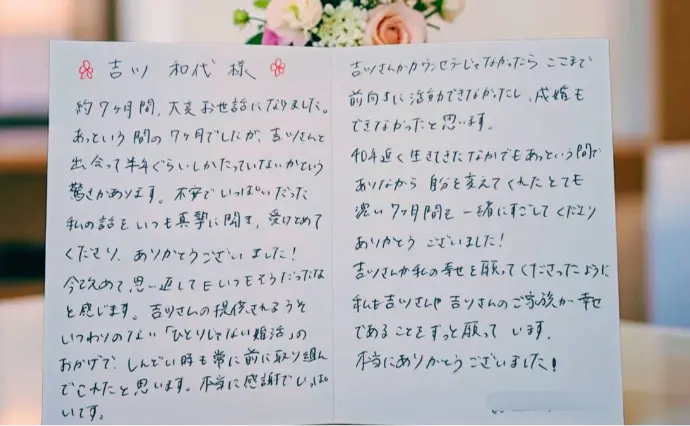 吉ツ 和代 様
約7ヶ月間、大変お世話になりました。
あっという間の7ヶ月でしたが、吉ツさんと
出会って半年ぐらいしかたっていないかという
驚きがあります。不安でいっぱいだった
私の話をいつも真摯に聞き、受けとめて
くださり、ありがとうございました!
今改めて、思い返してもいつもそうだったな
と感じます。吉ツさんの提供されるうそ
いつわりのない「ひとりじゃない婚活」の
おかげで、しんどい時も常に前に取り組ん
でこれたと思います。本当に感謝でいっぱ
いです。
吉ツさんがカウンセラーじゃなかったら ここまで
前向きに活動できなかったし、成婚も
できなかったと思います。
40年近く生きてきたなかでもあっという間で
ありながら 自分を変えてくれたとても
濃い7ヶ月間を一緒にすごしてくださり
ありがとう ございました!
吉ツさんが私の幸せを願ってくださったように
私も吉ツさんや吉ツさんのご家族が幸せ
であることをずっと願って います。
本当にありがとうございました!